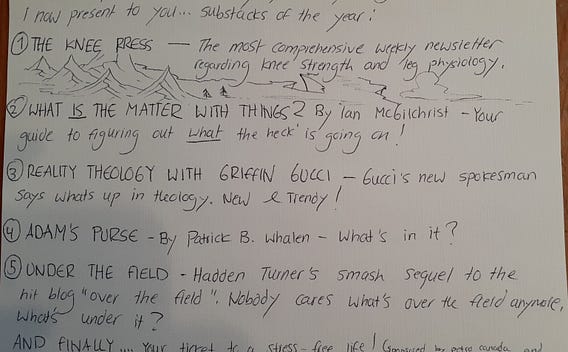 I now present to you... substacks of the year:
① THE KNEE PRESS — The most comprehensive weekly newsletter
regarding knee strength and leg physiology.
② WHAT IS THE MATTER WITH THINGS? By Ian McGilchrist - Your
guide to figuring out what the heck is going on!
③ REALITY THEOLOGY WITH GRIFFIN GUCCI — Gucci's new spokesman
says whats up in theology. New & Trendy!
④ ADAM'S PURSE - By Patrick B. Whalen - What's in it?
⑤ UNDER THE FIELD - Hadden Turner's smash sequel to the
hit blog "over the field". Nobody cares what's over the field anymore,
What's under it?
AND FINALLY.... Your ticket to a stress-free life! (Sponsored by petro canada and